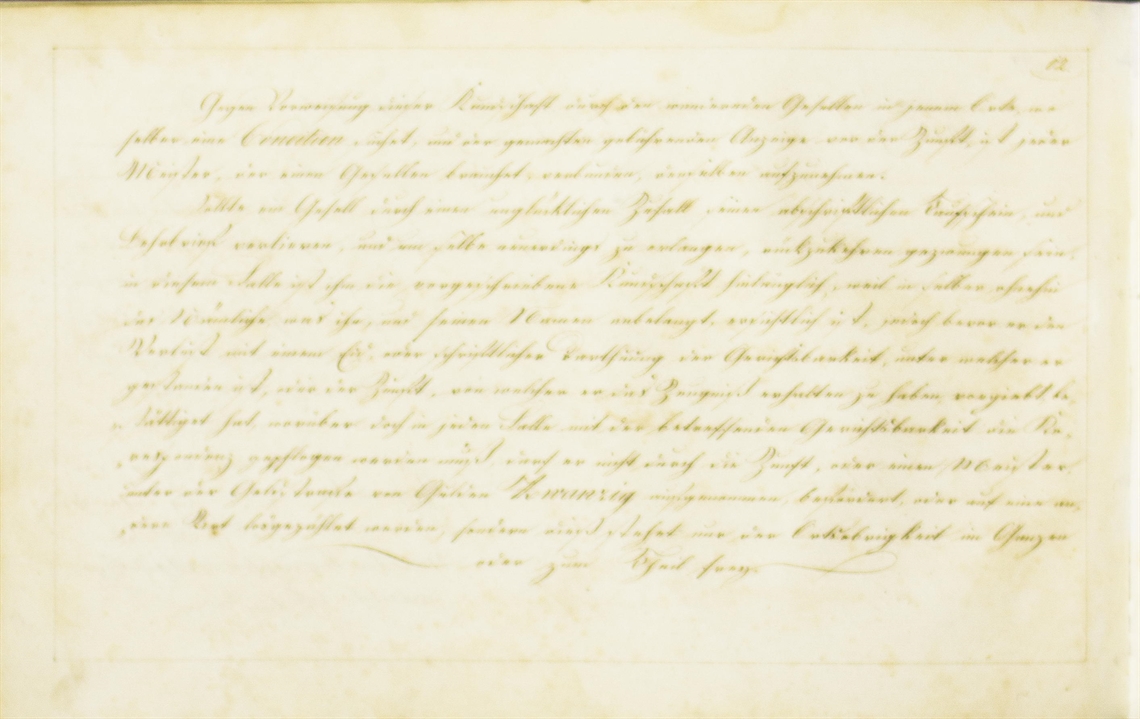 62
Gegen Vorweisung dieser Kundschaft durch den wandernden Gesellen in jenem Orte, wo
selber eine Condition suchet, und der gemachten gebührenden Anzeige vor der Zunft, ist jeder
Meister, der einen Gesellen brauchet, verbunden, denselben aufzunehmen.
Sollte ein Gesell durch einen unglücklichen Zufall seinen abschriftlichen Taufschein, und
Lehrbrief verlieren, und um selbe neuerdings zu erlangen, rückzukehren gezwungen sein,
in diesem Falle ist ihm die vorgeschriebene Kundschaft hinlänglich, weil in selber ohnehin
das Nämliche was ihn, und seinen Namen anbelangt, ersichtlich ist, jedoch bevor er den
Verlust mit einem Eid, oder schriftlicher Darthuung der Gerichtsbarkeit, unter welcher er
gestanden ist, oder der Zunft, von welcher er das Zeugniß erhalten zu haben vorgiebt be¬
stättiget hat, worüber doch in jeden Falle mit der betreffenden Gerichtsbarkeit die Ko¬
respondenz gepflogen werden muß, darf er nicht durch die Zunft, oder einen Meister
unter der Geldstrafe von Gulden Zwanzig aufgenommen, befördert, oder auf eine an¬
dere Art losgezählet werden, sondern dieß stehet nur der Ortsobrigkeit im Ganzen
oder zum Theil frey.